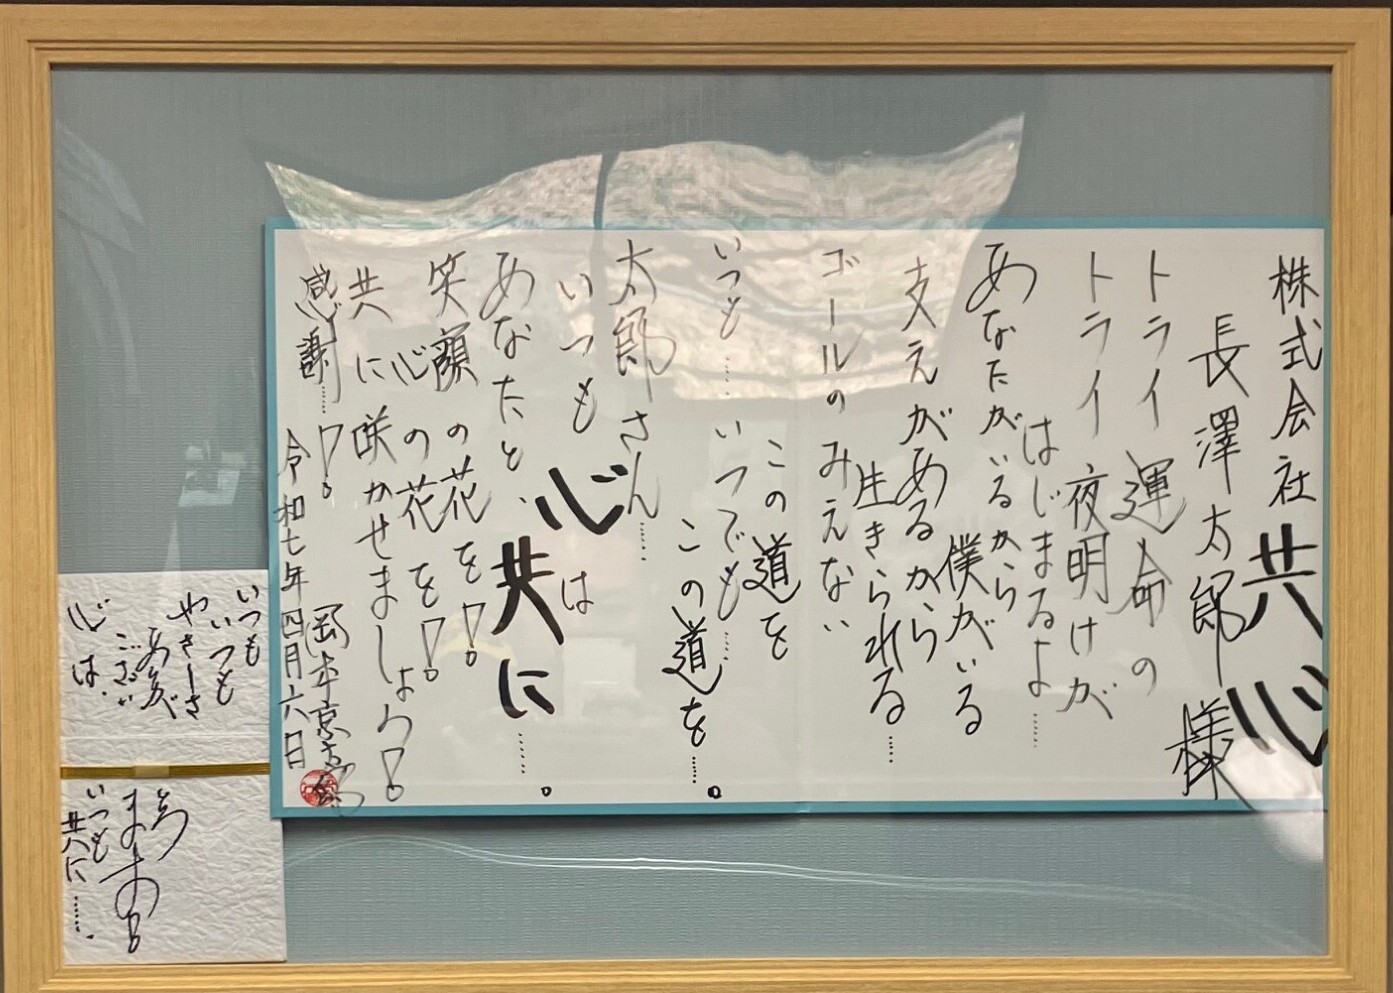 株式会社共心
長澤太郎様
トライ運命の
トライ夜明けが
はじまるよ……
あなたがいるから
僕がいる
支えがあるから
生きられる……
ゴールのみえない
この道を
いつも……いつでも……
この道を……。
太郎さん……
いつも心は
あなたと、共に……。
笑顔の花を!!
心の花を!!
共に咲かせましょう!!
感謝……!!
令和七年四月六日
いつも
いつも
やさしさ
ありが
ござい
心は、
とう
ます!!
いつも
共に……。